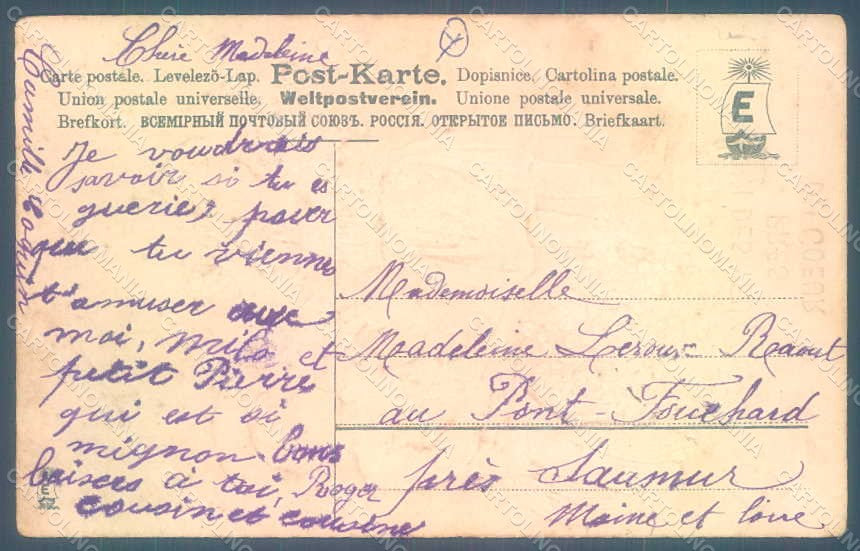 Chère Madeleine
Carte postale. Levelező-Lap. Post-Karte. Dopisnice. Cartolina postale.
Union postale universelle. Weltpostverein. Unione postale universale.
Brefkort. ВСЕМІРНЫЙ ПОЧТОВЫЙ СОЮЗЪ. РОССІЯ. ОТКРЫТОЕ ПИСЬМО. Briefkaart.
E
Je voudrais
savoir si tu es
guerie, pour
que tu viennes
t'amuser avec
moi, et
petit Pierre
qui est si
mignon. bons
baisers à toi, Roger
cousin et cousine
Camille
Mademoiselle
Madeleine Leroux Raoul
au Pont-Fouchard
près Saumur
Maine et loire
CARTOLINOMANIA